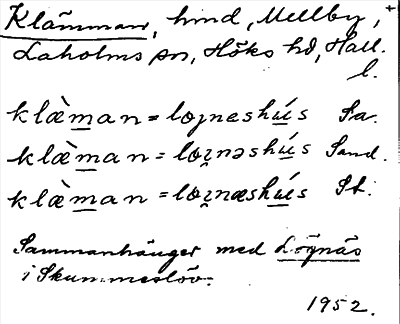 Klämman, hmd, Mellby, +
Laholms sn, Höks hd, Hall.
l.
klæ̀man = lojneshús Sa.
klæ̀man = loŋnəshús Sand.
klæ̀man = loŋnæshús St.
Sammanhänger med Lögnäs
i Skummeslöv.
1952.